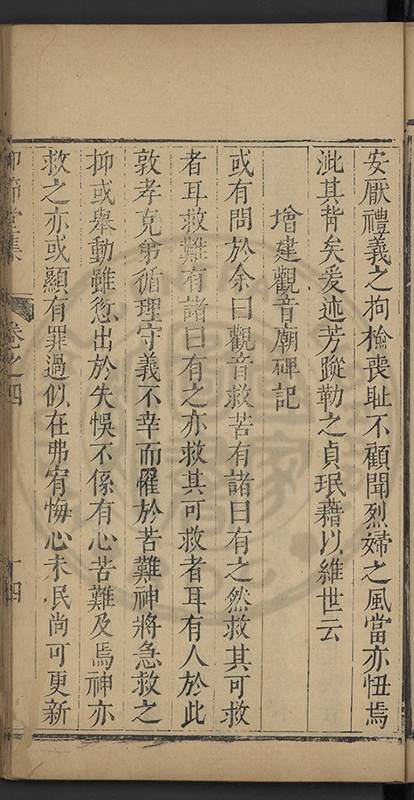 安厭禮義之拘檢喪恥不顧聞烈婦之風當亦忸焉
泚其背矣爰述芳蹤勒之貞珉藉以維世云
增建觀音廟碑記
或有問於余曰觀音救苦有諸曰有之然救其可救
者耳救難有諸曰有之亦救其可救者耳有人於此
敦孝克弟循理守義不幸而罹於苦難神將急救之
抑或舉動雖愆出於失悞不係有心苦難及焉神亦
救之亦或顯有罪過似在弗宥悔心未民尚可更新
仰節堂集
卷之四
十四